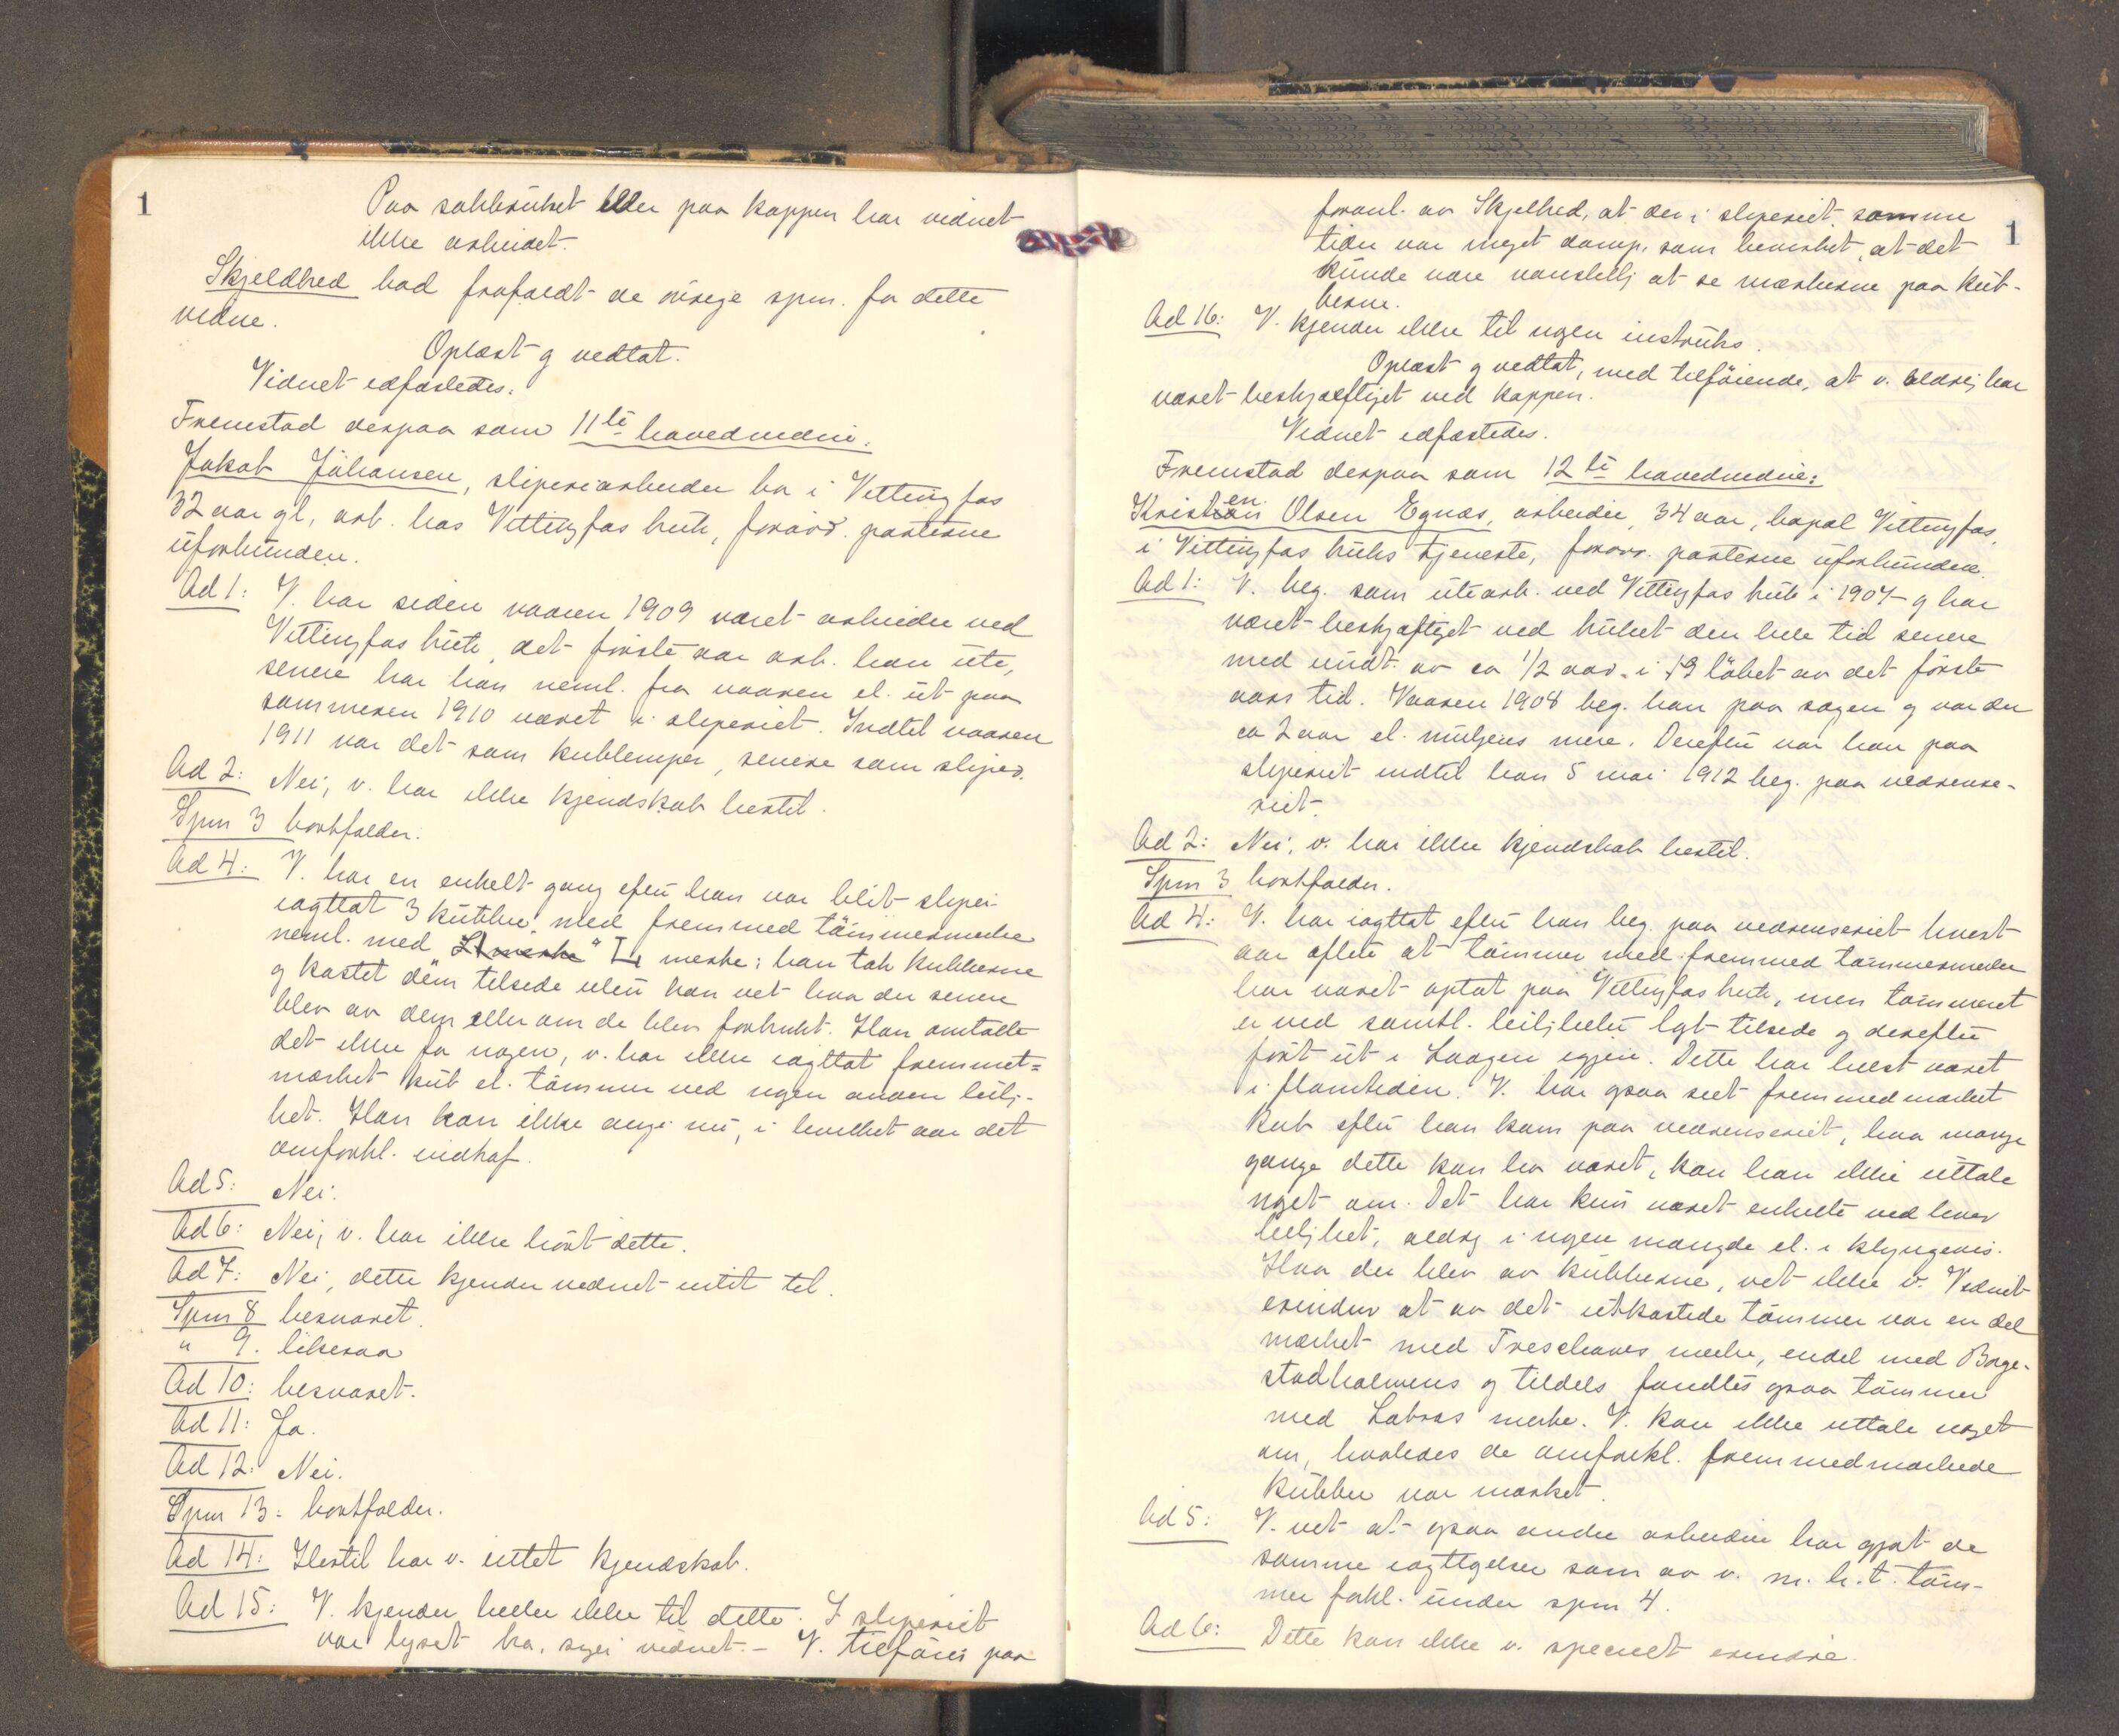 1
Paa sakbruket eller paa kappen har vidnet
ikke arbeidet.
Skjeldbred bad frafaldt de øvrige spm. for dette
vidne.
Oplæst og vedtat.
Vidnet edfæstedes.
Fremstod derpaa som 11te hovedvidne:
Jakob Johansen, sliperiarbeider bor i Vittingfos
32 aar gl, arb. hos Vittingfos bruk, forøvr. parterne
uforbunden.
Ad 1: V. har siden vaaren 1909 været arbeider ved
Vittingfos bruk, det første aar arb. han ute,
senere har han neml. fra vaaren el. ut paa
sommeren 1910 været i sliperiet. Indtil vaaren
1911 var det som kublemper, senere som sliper.
Ad 2: Nei, v. har ikke kjendskab hertil.
Spm 3 bortfalder.
Ad 4: V. har en enkelt gang efter han var blit sliper
iagttat 3 kubber med fremmed tømmermerke
neml. med merke; han tok kubberne
og kastet dem tilside uten han vet hva der senere
blev av dem eller om de blev forbrukt. Han omtalte
det ikke for nogen, v. har ikke iagttat fremmet=
merket kub el. tømmer ved nogen anden leilj-
het. Han kan ikke angi nu, i hvilket aar det
omforkl. indtraf.
Ad 5: Nei.
Ad 6: Nei, v. har ikke hørt dette.
Ad 7: Nei, dette kjender vidnet intet til.
Spm 8 besvaret.
" 9. likesaa
Ad 10: besvaret.
Ad 11: Ja.
Ad 12: Nei.
Spm 13: bortfalder.
Ad 14: Hertil har v. intet kjendskab.
Ad 15: V. kjender heller ikke til dette. I sliperiet
var lyset bra, sier vidnet. – V. tilføier paa
1
foranl. av Skjelbred, at der i sliperiet somme
tider var meget damp, som bevirket, at det
kunde være vanskelig at se mærkerne paa kub-
berne.
Ad 16: V. kjender ikke til nogen instruks.
Oplæst og vedtat, med tilføiende, at v. aldrig har
været beskjæftiget ved kappen.
Vidnet edfæstedes.
Fremstod derpaa som 12te hovedvidne:
Kristen Olsen Egnæs, arbeider, 34 aar, bopæl Vittingfos,
i Vittingfos bruks tjeneste, forøvr. parterne uforbunden.
Ad 1: V. beg. som utearb. ved Vittingfos bruk i 1907 og har
været beskjæftiget ved bruket den hele tid senere
med undt. av ca 1/2 aar i løbet av det første
aars tid. Vaaren 1908 beg. han paa sagen og var der
ca 2 aar el. muligens mere. Derefter var han paa
sliperiet indtil han 5 mai 1912 beg. paa vedrense-
riet.
Ad 2: Nei, v. har ikke kjendskab hertil.
Spm 3 bortfalder.
Ad 4: V. har iagttat efter han beg. paa vedrenseriet hvert
aar oftere at tømmer med fremmed tømmermerke
har været optat paa Vittingfos bruk, men tømmeret
er ved samtl. leiljheter lagt tilside og derefter
ført ut i Laagen igjen. Dette har helst været
i flomtiden. V. har ogsaa seet fremmedmerket
kub efter han kom paa vedrenseriet, hvor mange
gange dette kan ha været, kan han ikke uttale
noget om. Det har kun været enkelte ved hver
leiljhet, aldrig i nogen mængde el. i klyngevis.
Hva der blev av kubberne, vet ikke v. Vidnet
erindrer at av det utkastede tømmer var en del
merket med Treschows merke, endel med Borge-
stadholmens og tildels fandtes ogsaa tømmer
med Labros merke. V. kan ikke uttale noget
om, hvorledes de omforkl. fremmedmerkede
kubber var merket.
Ad 5: V. vet at ogsaa andre arbeidere har gjort de
samme iagttagelser som av v. m. h. t. tøm-
mer forkl. under spm 4.
Ad 6: Dette kan ikke v. specielt erindre.